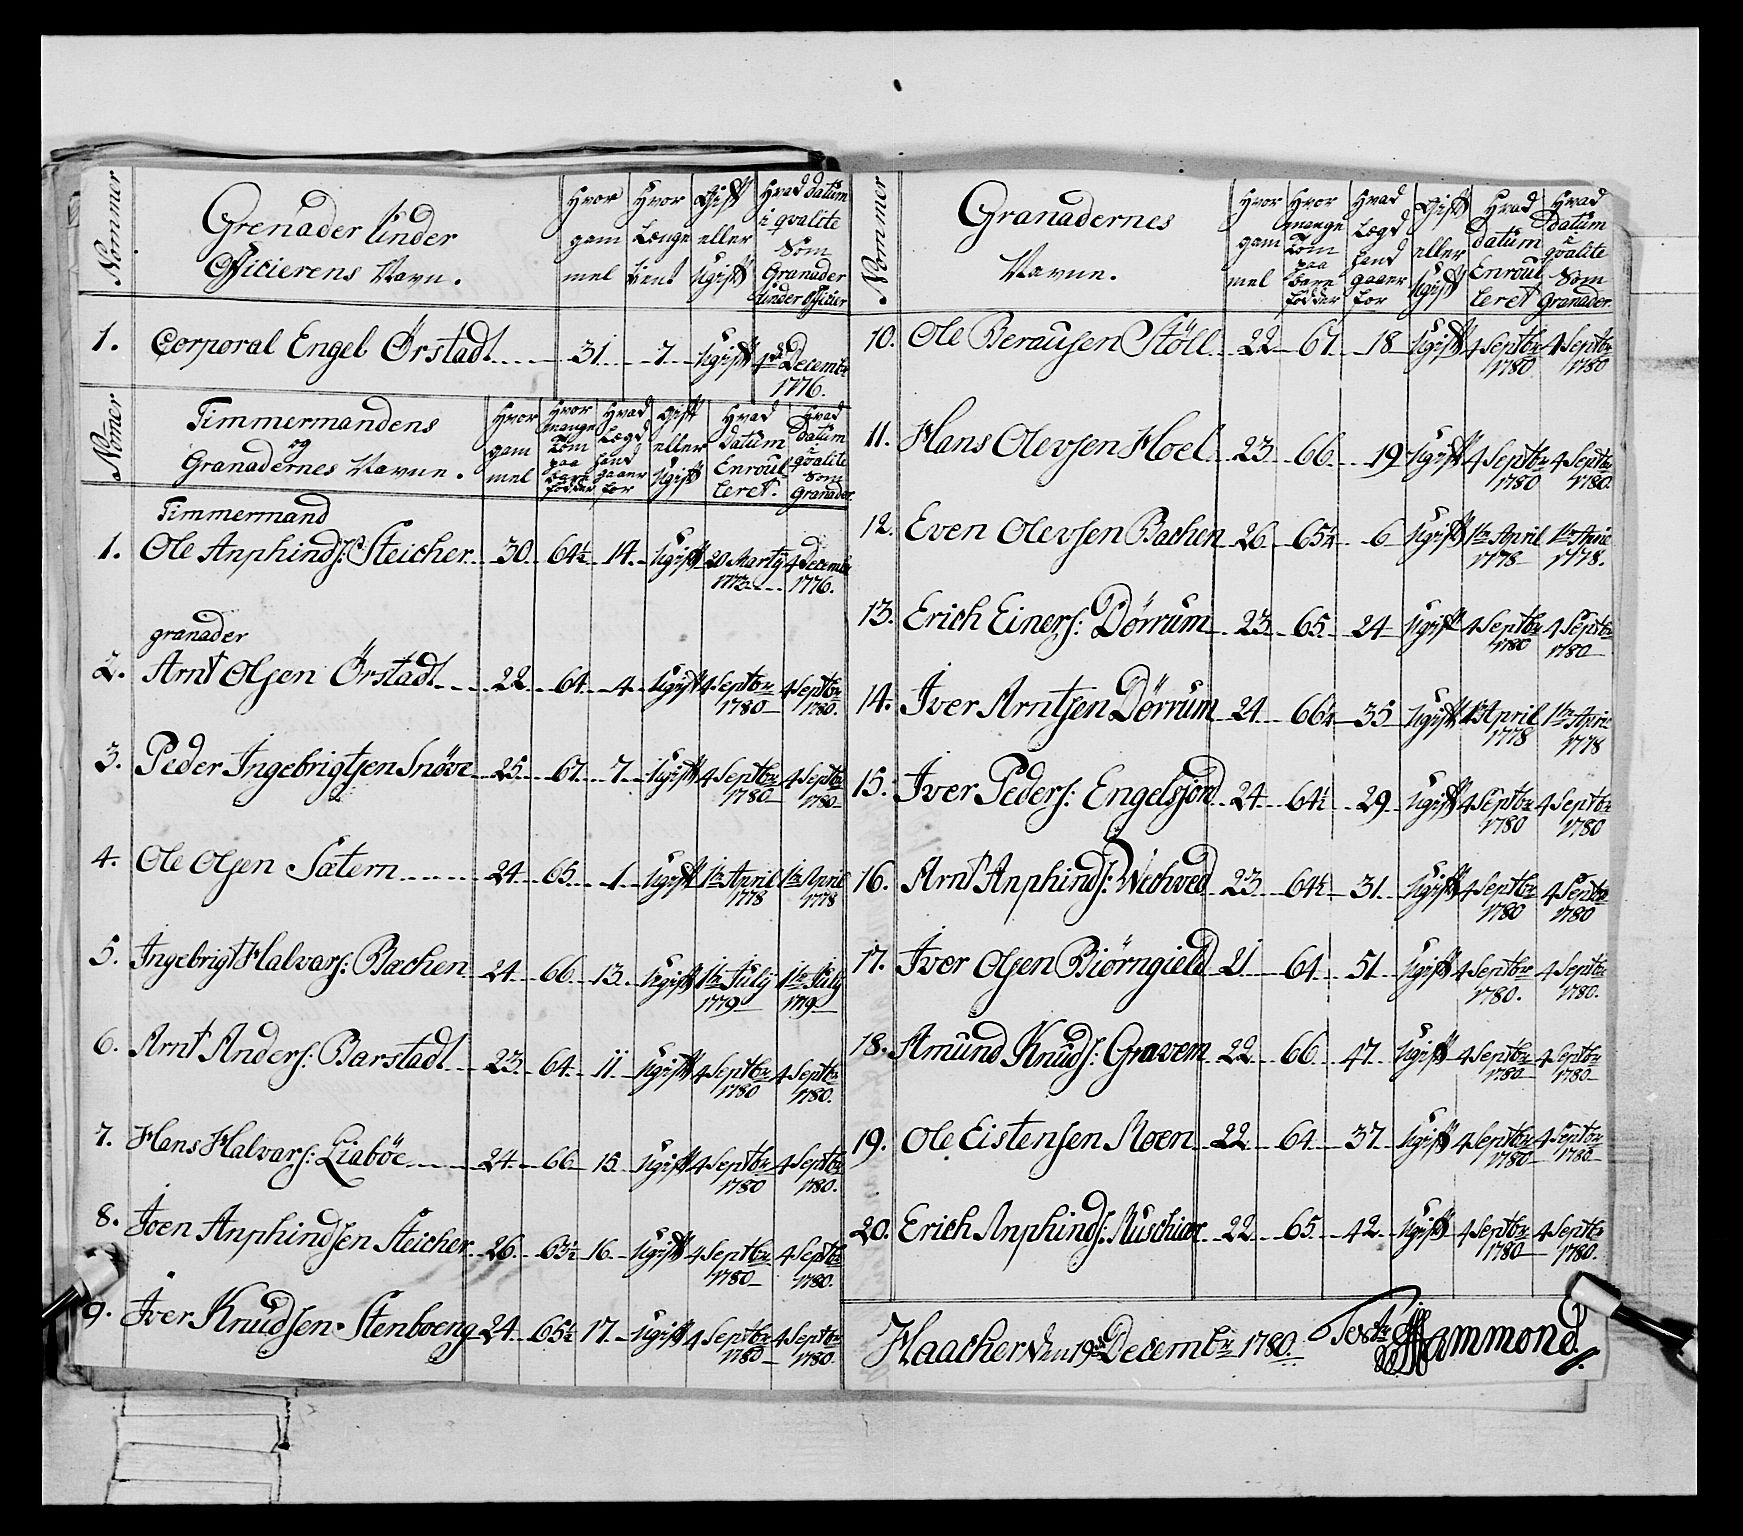 Nommer
Grenader Under
Officierens Navn.
Hvor gam mel
Hvor Længe tient
Gift eller Ugift
Hvad datum i qvalite Som Granader Under Officier
1. Corporal Engel Örstadt 31 7 Ugift 4de Decembr 1776.
Nomer
Timmermandens
og
Granadernes Navne.
Hvor gam mel
Hvor mange Tom paa bare födder
Hvad Lægd hand gaaer for
Gift eller Ugift
Hvad datum Enroul leret.
Hvad datum i qvalite Som Granader.
Timmermand
1. Ole Anphinds: Steicher 30 64½ 14 Ugift 20 Marty 1773 4 Decembr 1776.
granader
2. Arnt Olsen Örstadt 22 64 4 Ugift 4 Septbr 1780 4 Septbr 1780.
3. Peder Ingebrigtsen Snöve 25 67 7 Ugift 4 Septbr 1780 4 Septbr 1780
4. Ole Olsen Sætern 24 65 1 Ugift 1te April 1778 1te April 1778
5. Ingebrigt Halvars: Bachen 24 66 13 Ugift 1te July 1779 1te July 1779
6. Arnt Anders: Barstadt 23 64 11 Ugift 4 Septbr 1780 4 Septbr 1780.
7. Hans Halvars: Liaböe 24 66 15 Ugift 4 Septbr 1780 4 Septbr 1780.
8. Joen Anphindsen Steicher 26 63½ 16 Ugift 4 Septbr 1780 4 Septbr 1780.
9. Iver Knudsen Stenboeng 24 65½ 17 Ugift 4 Septbr 1780 4 Septbr 1780.
Nommer
Granadernes
Navne.
Hvor gam mel
Hvor mange Tom paa bare födder
Hvad Lægd hand gaaer for
Gift eller Ugift
Hvad datum Enroul leret
Hvad Datum i qvalite Som Granader.
10. Ole Berausen Stöll 22 67 18 Ugift 4 Septbr 1780 4 Septbr 1780
11. Hans Olevsen Hoel 23 66 19 Ugift 4 Septbr 1780 4 Septbr 1780.
12. Even Olevsen Bachen 26 65¼ 6 Ugift 1te April 1778 1te April 1778.
13. Erich Einers: Dörrum 23 65 24 Ugift 4 Septbr 1780 4 Septbr 1780
14. Iver Arntsen Dörrum 24 66¼ 35 Ugift 1te April 1778 1te April 1778
15. Iver Peders: Engelsjord 24 64½ 29 Ugift 4 Septbr 1780 4 Septbr 1780
16. Arnt Anphinds: Wichved 23 64½ 31 Ugift 4 Septbr 1780 4 Septbr 1780
17. Iver Olsen Biörngield 21 64 51 Ugift 4 Septbr 1780. 4 Septbr 1780.
18. Amund Knuds: Gravem 22 66 47 Ugift 4 Septbr 1780 4 Septbr 1780
19. Ole Eistensen Moen 22 64 37 Ugift 4 Septbr 1780 4 Septbr 1780
20. Erich Anphinds: Ruschiöe 22 65 42 Ugift 4 Septbr 1780 4 Septbr 1780.
Haacher den 19de Decembr 1780. Hammond.